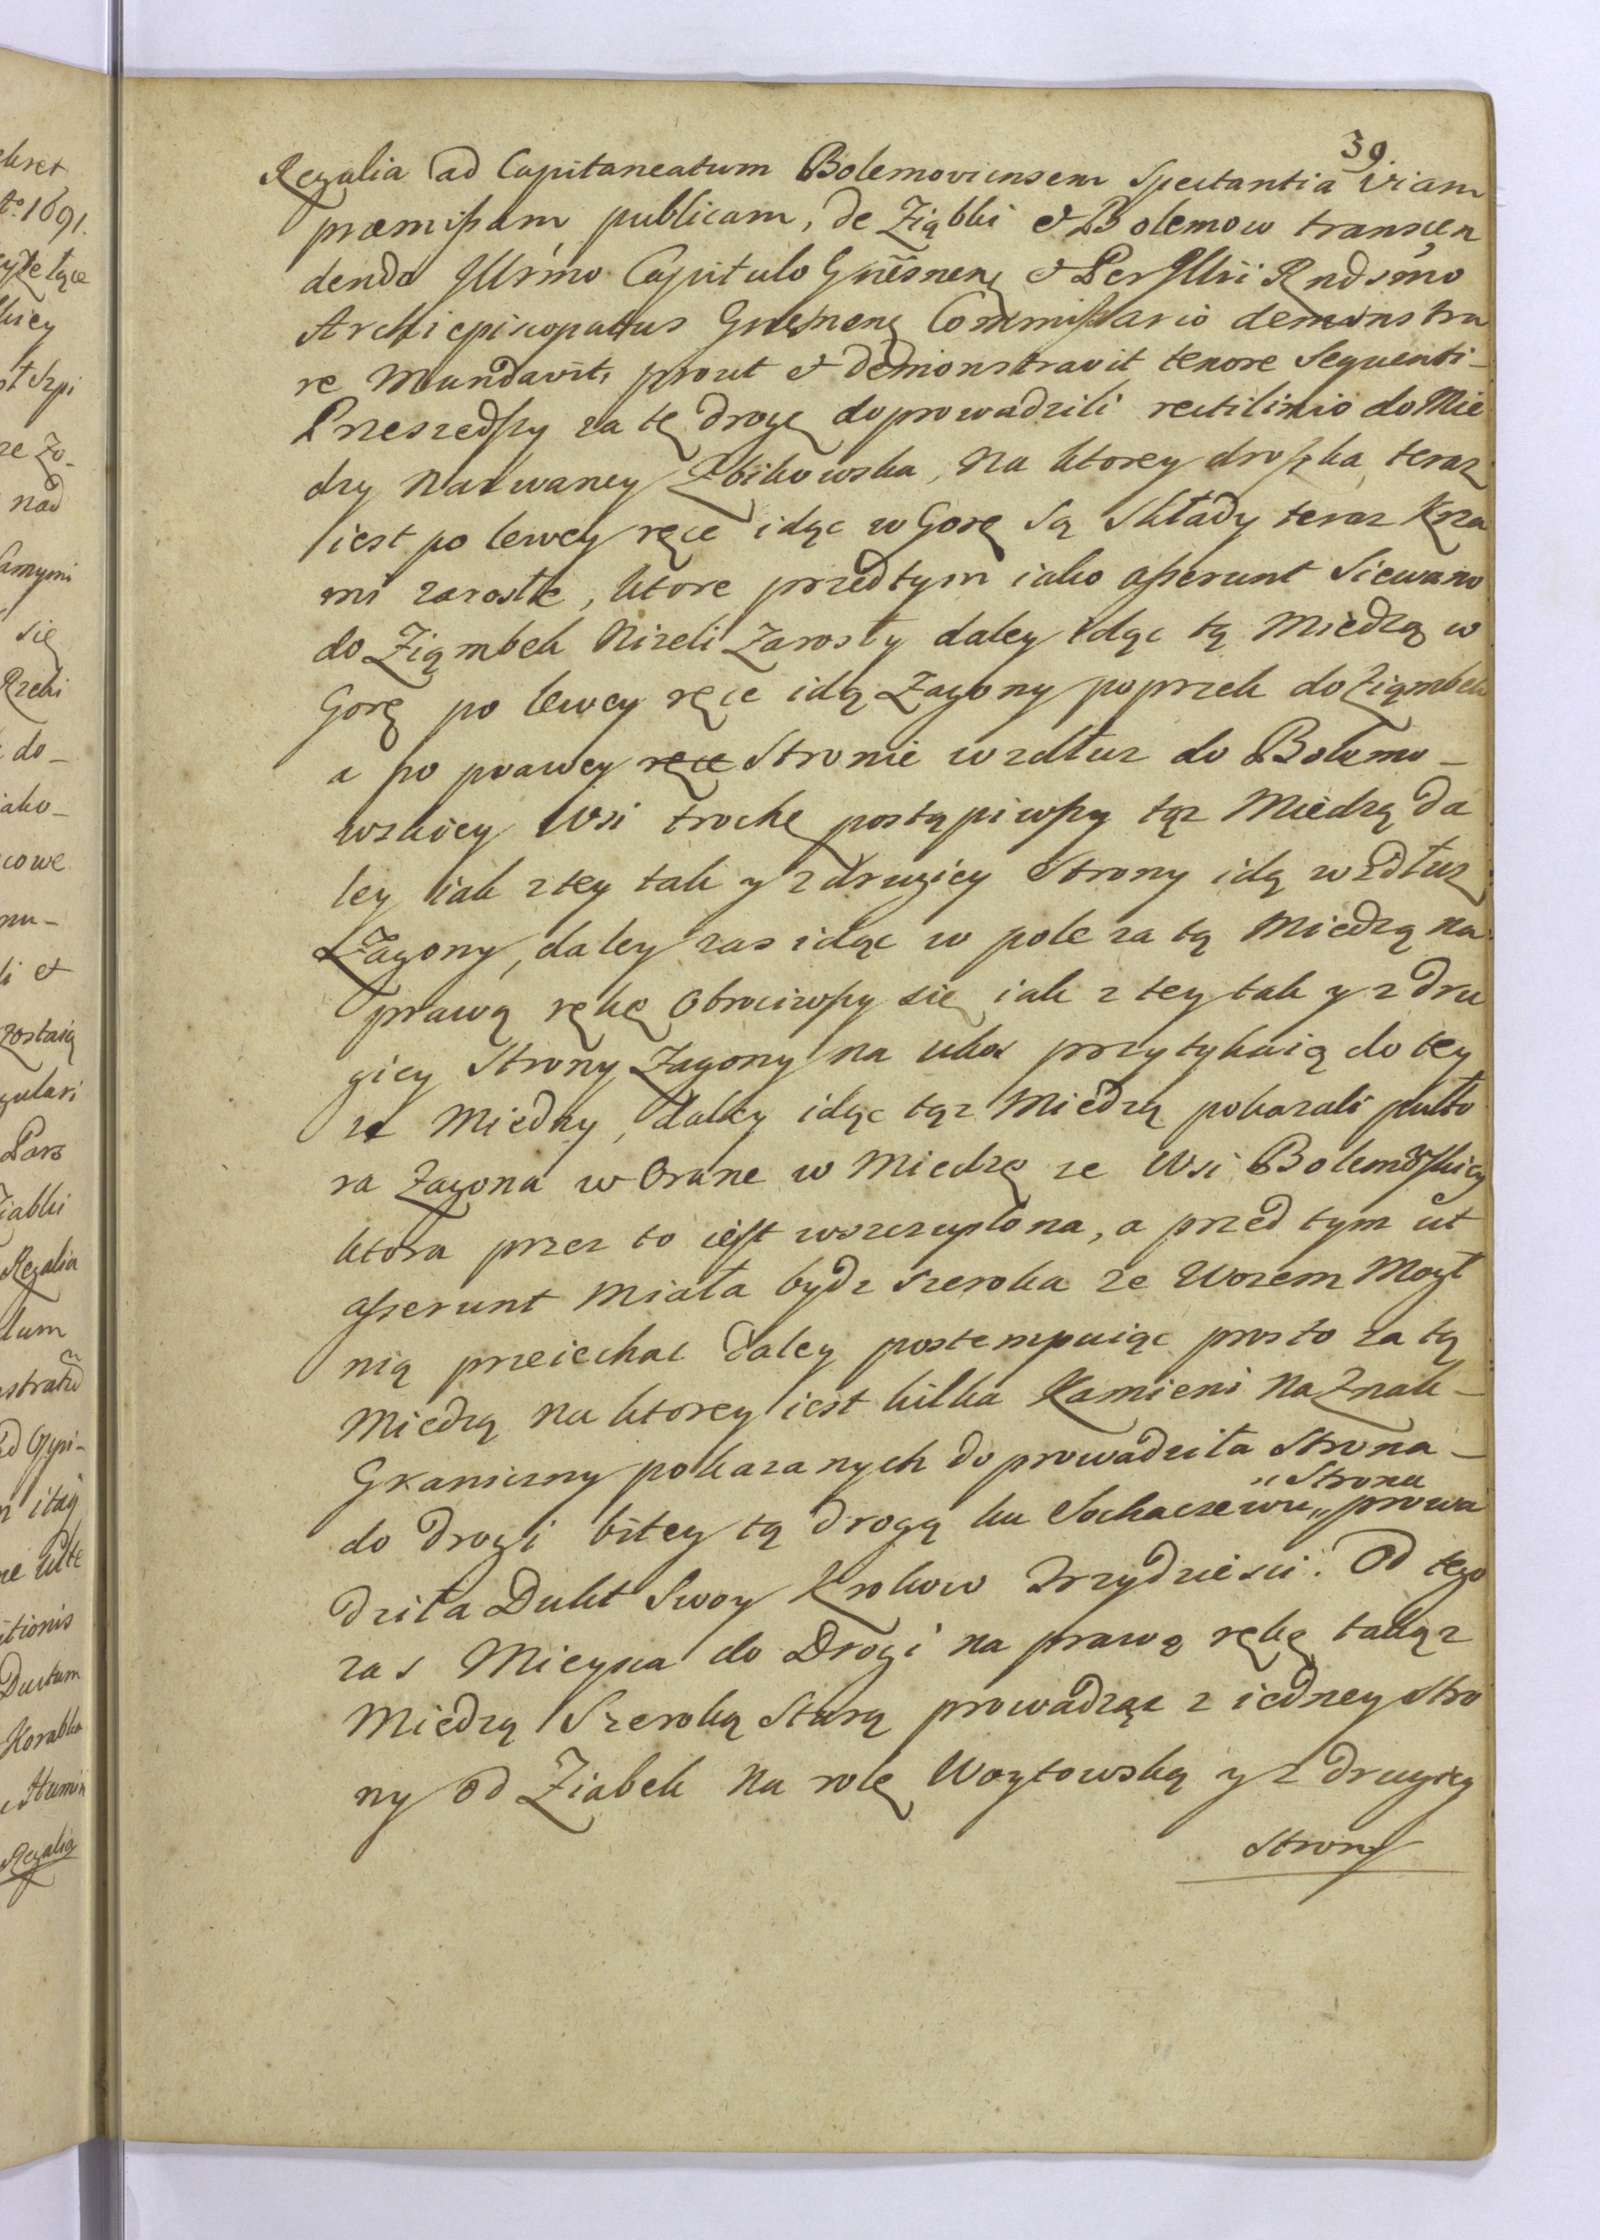 39.
Regalia ad Capitaneatum Bolemoviensem Spectantia Viam
præmissam publicam, de Ziąbki et Bolemow transcen
dendo Illrmo Capitulo Gnesnen et Per Illri Rndsmo
Archiepiscopatus Gnesnen Commissario demonstra
re Mandavit, prout et demonstravit tenore Sequenti_
Przeszedszy za tę drogę doprowadzili rectilinio do Mie
dzy Nazwaney Zbikowska, Na ktorey droszka, teraz
iest po lewey ręce idąc w Gorę Są Składy teraz Krza
mi zarosłe, ktore przedtym iako asserunt Siewano
do Ziąmbek Nizeli Zarosły daley idąc tą Miedzą w
Gorę po lewey ręce idą Zagony poprzek do Ziąmbek
a po prawey ręce Stronie wzdłuz do Bolemo_
wskiey Wsi trochę postąpiwszy tąz Miedzą da
ley iak z tey tak y z drugiey Strony idą wzdłuz
Zagony, daley zas idąc w pole za tą Miedzą na
prawą rękę Obrociwszy się iak z tey tak y z dru
giey Strony Zagony na ukos przytykaią do tey
ze Miedzy, daley idąc tąz Miedzą pokazali pułto
ra Zagona w Orane w Miedzę ze Wsi Bolemowskiey
ktora przez to iest wszczuplona, a przed tym ut
asserunt Miała bydz Szeroka ze Wozem Mogł
nią przeiechac daley postempuiąc prosto za tą
Miedzą na ktorey iest kilka Kamieni Na Znak_
Graniczny pokazanych doprowadziła Strona_
do drogi bitey tą drogą ku Sochaczewu,, prowa
"Strona
dziła Dukt Swoy Krokow Trzydziesci. Od tego
zas Mieysca do Drogi na prawą rękę takąz
Miedzą Szeroką Starą prowadząc z iedney Stro
ny od Ziabek Na rolę Woytowską y z drugiey
Strony
ekret
1691.
nad
Się
Rzeki
do_
iako_
cowe
nu_
li et
zostaią
gulari
Pars
Ziabki
Regalia
itionis
Ductum
Korabka
Regalia